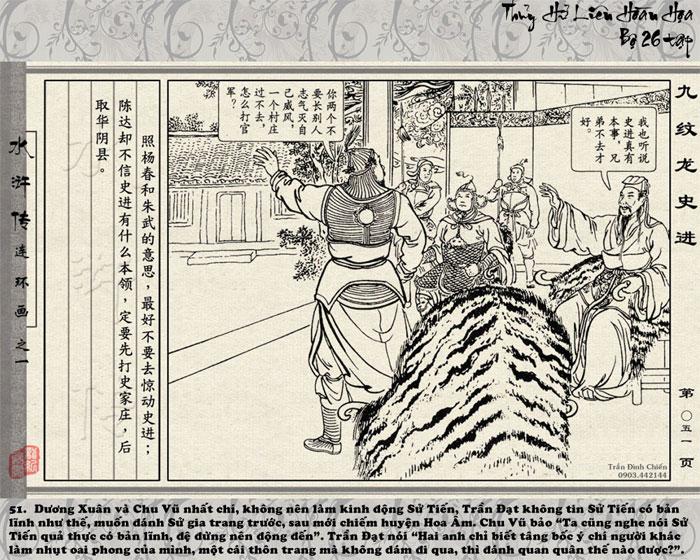 Thủy Hử Liên Hoàn Họa
Bộ 26 tập
九纹龙史进
第〇五一页
我也听说
史进真有
本事，兄
弟不去才
好。
你两个不
要长别人
志气灭自
己威风，
一个村庄
过不去，
怎么打官
军？
照杨春和朱武的意思，最好不要去惊动史进；
陈达却不信史进有什么本领，定要先打史家庄，后
取华阴县。
水浒传连环画之一
Trần Đình Chiến
0903.442144
51. Dương Xuân và Chu Vũ nhất chỉ, không nên làm kinh động Sử Tiến, Trần Đạt không tin Sử Tiến có bản
lĩnh như thế, muốn đánh Sử gia trang trước, sau mới chiếm huyện Hoa Âm. Chu Vũ bảo "Ta cũng nghe nói Sử
Tiến quả thực có bản lĩnh, đệ đừng nên động đến". Trần Đạt nói "Hai anh chỉ biết tâng bốc ý chí người khác
làm nhụt oai phong của mình, một cái thôn trang mà không dám đi qua, thì đánh quan quân thế nào được?"